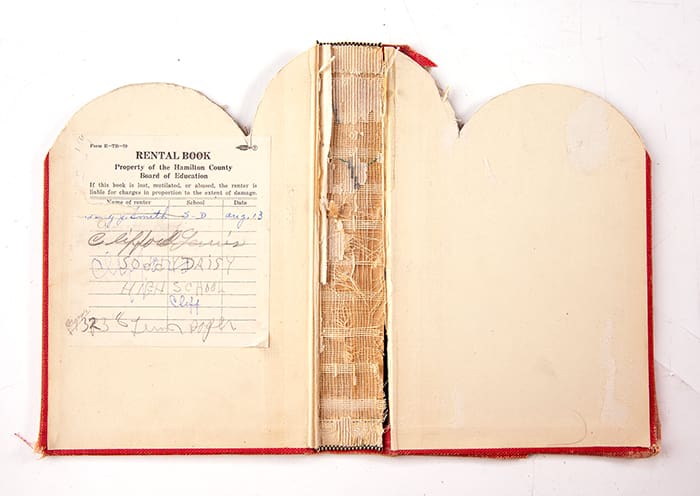 Form E-TB-79
RENTAL BOOK
Property of the Hamilton County
Board of Education
If this book is lost, mutilated, or abused, the renter is
liable for charges in proportion to the extent of damage.
Name of renter School Date
Smith S-D Aug. 13
Clifford
SODDY DAISY
HIGH SCHOOL
Cliff
323